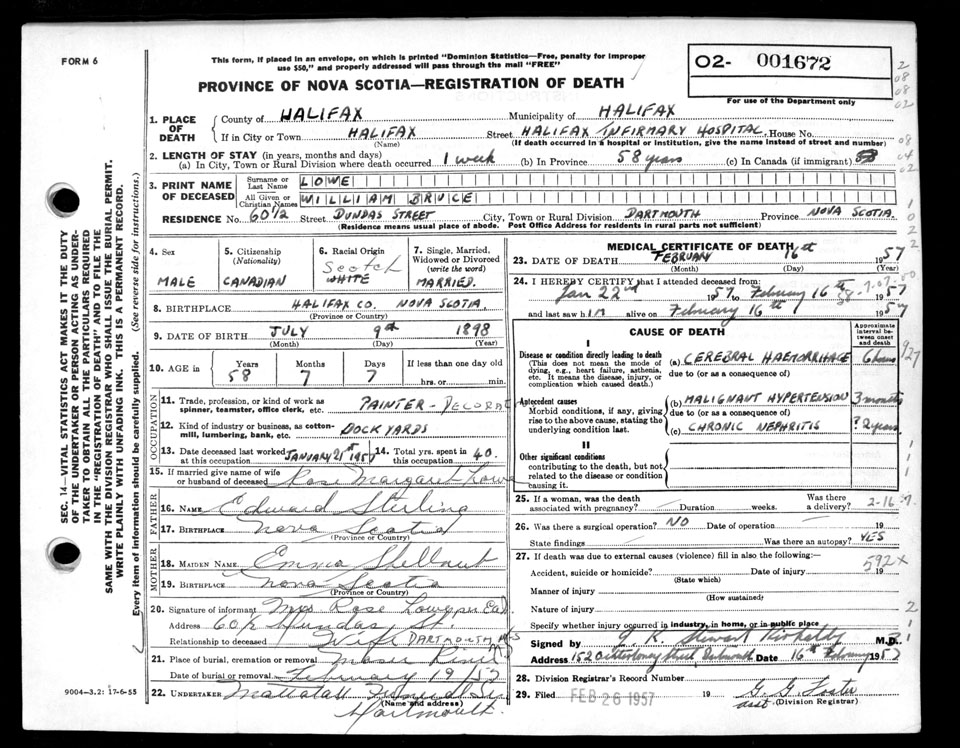 FORM 6
This form, if placed in an envelope, on which is printed "Dominion Statistics—Free, penalty for improper
use $50," and properly addressed will pass through the mail "FREE"
PROVINCE OF NOVA SCOTIA—REGISTRATION OF DEATH
02- 001672
For use of the Department only
SEC. 14—VITAL STATISTICS ACT MAKES IT THE DUTY
OF THE UNDERTAKER OR PERSON ACTING AS UNDER-
TAKER TO OBTAIN ALL THE PARTICULARS REQUIRED
IN THE "REGISTRATION OF DEATH" AND TO FILE THE
SAME WITH THE DIVISION REGISTRAR WHO SHALL ISSUE THE BURIAL PERMIT.
WRITE PLAINLY WITH UNFADING INK. THIS IS A PERMANENT RECORD.
Every item of information should be carefully supplied. (See reverse side for instructions.)
1. PLACE OF DEATH
County of HALIFAX Municipality of HALIFAX
If in City or Town HALIFAX Street HALIFAX INFIRMARY HOSPITAL House No.
(Name) (If death occurred in a hospital or institution, give the name instead of street and number)
2. LENGTH OF STAY (in years, months and days)
(a) In City, Town or Rural Division where death occurred 1 week (b) In Province 58 years (c) In Canada (if immigrant)
3. PRINT NAME OF DECEASED
Surname or Last Name LOWE
All Given or Christian Names WILLIAM BRUCE
RESIDENCE No. 60 1/2 Street DUNDAS STREET City, Town or Rural Division DARTMOUTH Province NOVA SCOTIA
(Residence means usual place of abode. Post Office Address for residents in rural parts not sufficient)
4. Sex MALE
5. Citizenship (Nationality) CANADIAN
6. Racial Origin Scotch WHITE
7. Single, Married, Widowed or Divorced (write the word) MARRIED.
8. BIRTHPLACE HALIFAX CO. NOVA SCOTIA
(Province or Country)
9. DATE OF BIRTH JULY 9th 1898
(Month) (Day) (Year)
10. AGE in Years Months Days If less than one day
58 7 7 hrs. or min.
OCCUPATION
11. Trade, profession, or kind of work as
spinner, teamster, office clerk, etc. PAINTER - DECORAT
12. Kind of industry or business, as cotton-
mill, lumbering, bank, etc. DOCKYARDS
13. Date deceased last worked at this occupation JANUARY 21st 1957
14. Total yrs. spent in this occupation 40.
15. If married give name of wife
or husband of deceased Rose Margaret Lowe
FATHER
16. NAME Edward Sterling
17. BIRTHPLACE Nova Scotia
(Province or Country)
MOTHER
18. MAIDEN NAME Emma
19. BIRTHPLACE Nova Scotia
(Province or Country)
20. Signature of informant Mrs Rose Lowe per
Address 60½ Dundas St.
Relationship to deceased Wife DARTMOUTH NS
21. Place of burial, cremation or removal Moser River
Date of burial or removal February 19/57
22. UNDERTAKER Mattatall Funeral
(Name and address)
Dartmouth.
9004—3.2: 17-6-55
MEDICAL CERTIFICATE OF DEATH
23. DATE OF DEATH FEBRUARY 16th 1957
(Month) (Day) (Year)
24. I HEREBY CERTIFY that I attended deceased from:
Jan 22nd 1957 to February 16th 1957
and last saw him alive on February 16th 1957
CAUSE OF DEATH
Approximate interval between onset and death
I
Disease or condition directly leading to death
(This does not mean the mode of
dying, e.g., heart failure, asthenia,
etc. It means the disease, injury, or
complication which caused death.)
(a) CEREBRAL HAEMORRHAGE 6 hours
due to (or as a consequence of)
Antecedent causes
Morbid conditions, if any, giving
rise to the above cause, stating the
underlying condition last.
(b) MALIGNANT HYPERTENSION 3 months
due to (or as a consequence of)
(c) CHRONIC NEPHRITIS ? 2 years
II
Other significant conditions
contributing to the death, but not
related to the disease or condition
causing it.
25. If a woman, was the death
associated with pregnancy? Duration weeks. Was there a delivery?
2-16
26. Was there a surgical operation? NO Date of operation 19
State findings Was there an autopsy? YES
27. If death was due to external causes (violence) fill in also the following:—
592x
Accident, suicide or homicide? Date of injury 19
(State which)
Manner of injury
(How sustained)
Nature of injury
Specify whether injury occurred in industry, in home, or in public place
Signed by J. K. Stewart Kirkaldy M.D.
Address 152 Street, Dartmouth Date 16th February 1957
28. Division Registrar's Record Number
29. Filed FEB 26 1957 19 G. G. Foster
asst (Division Registrar)